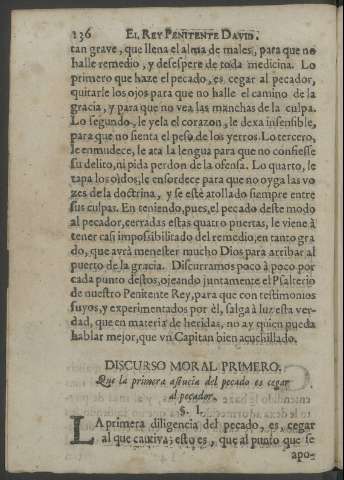 136 EL REY PENITENTE DAVID.
tan grave, que llena el alma de males, para que no
halle remedio, y desespere de toda medicina. Lo
primero que haze el pecado, es cegar al pecador,
quitarle los ojos para que no halle el camino de la
gracia, y para que no vea las manchas de la culpa.
Lo segundo, le yela el corazon, le dexa insensible,
para que no sienta el peso de los yerros. Lo tercero,
le enmudece, le ata la lengua para que no confiesse
su delito, ni pida perdon de la ofensa. Lo quarto, le
tapa los oìdos, le ensordece para que no oyga las vo
zes de la doctrina, y se estè atollado siempre entre
sus culpas. En teniendo, pues, el pecado deste modo
al pecador, cerradas estas quatro puertas, le viene à
tener casi impossibilitado del remedio, en tanto gra
do, que avrà menester mucho Dios para arribar al
puerto de la gracia. Discurramos poco à poco por
cada punto destos, ojeando juntamente el Psalterio
de nuestro Penitente Rey, para que con testimonios
suyos, y experimentados por èl, salga à luz esta ver-
dad, que en materia de heridas, no ay quien pueda
hablar mejor, que vn Capitan bien acuchillado.
DISCURSO MORAL PRIMERO.
Que la primera astucia del pecado es cegar
al pecador.
§. I.
LA primera diligencia del pecado, es, cegar
al que cautiva; esto es, que al punto que se
apo-